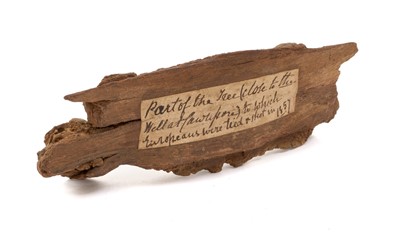 Part of the Tree close to the
Well at Cawnpore to which
Europeans were tied & shot in 1857